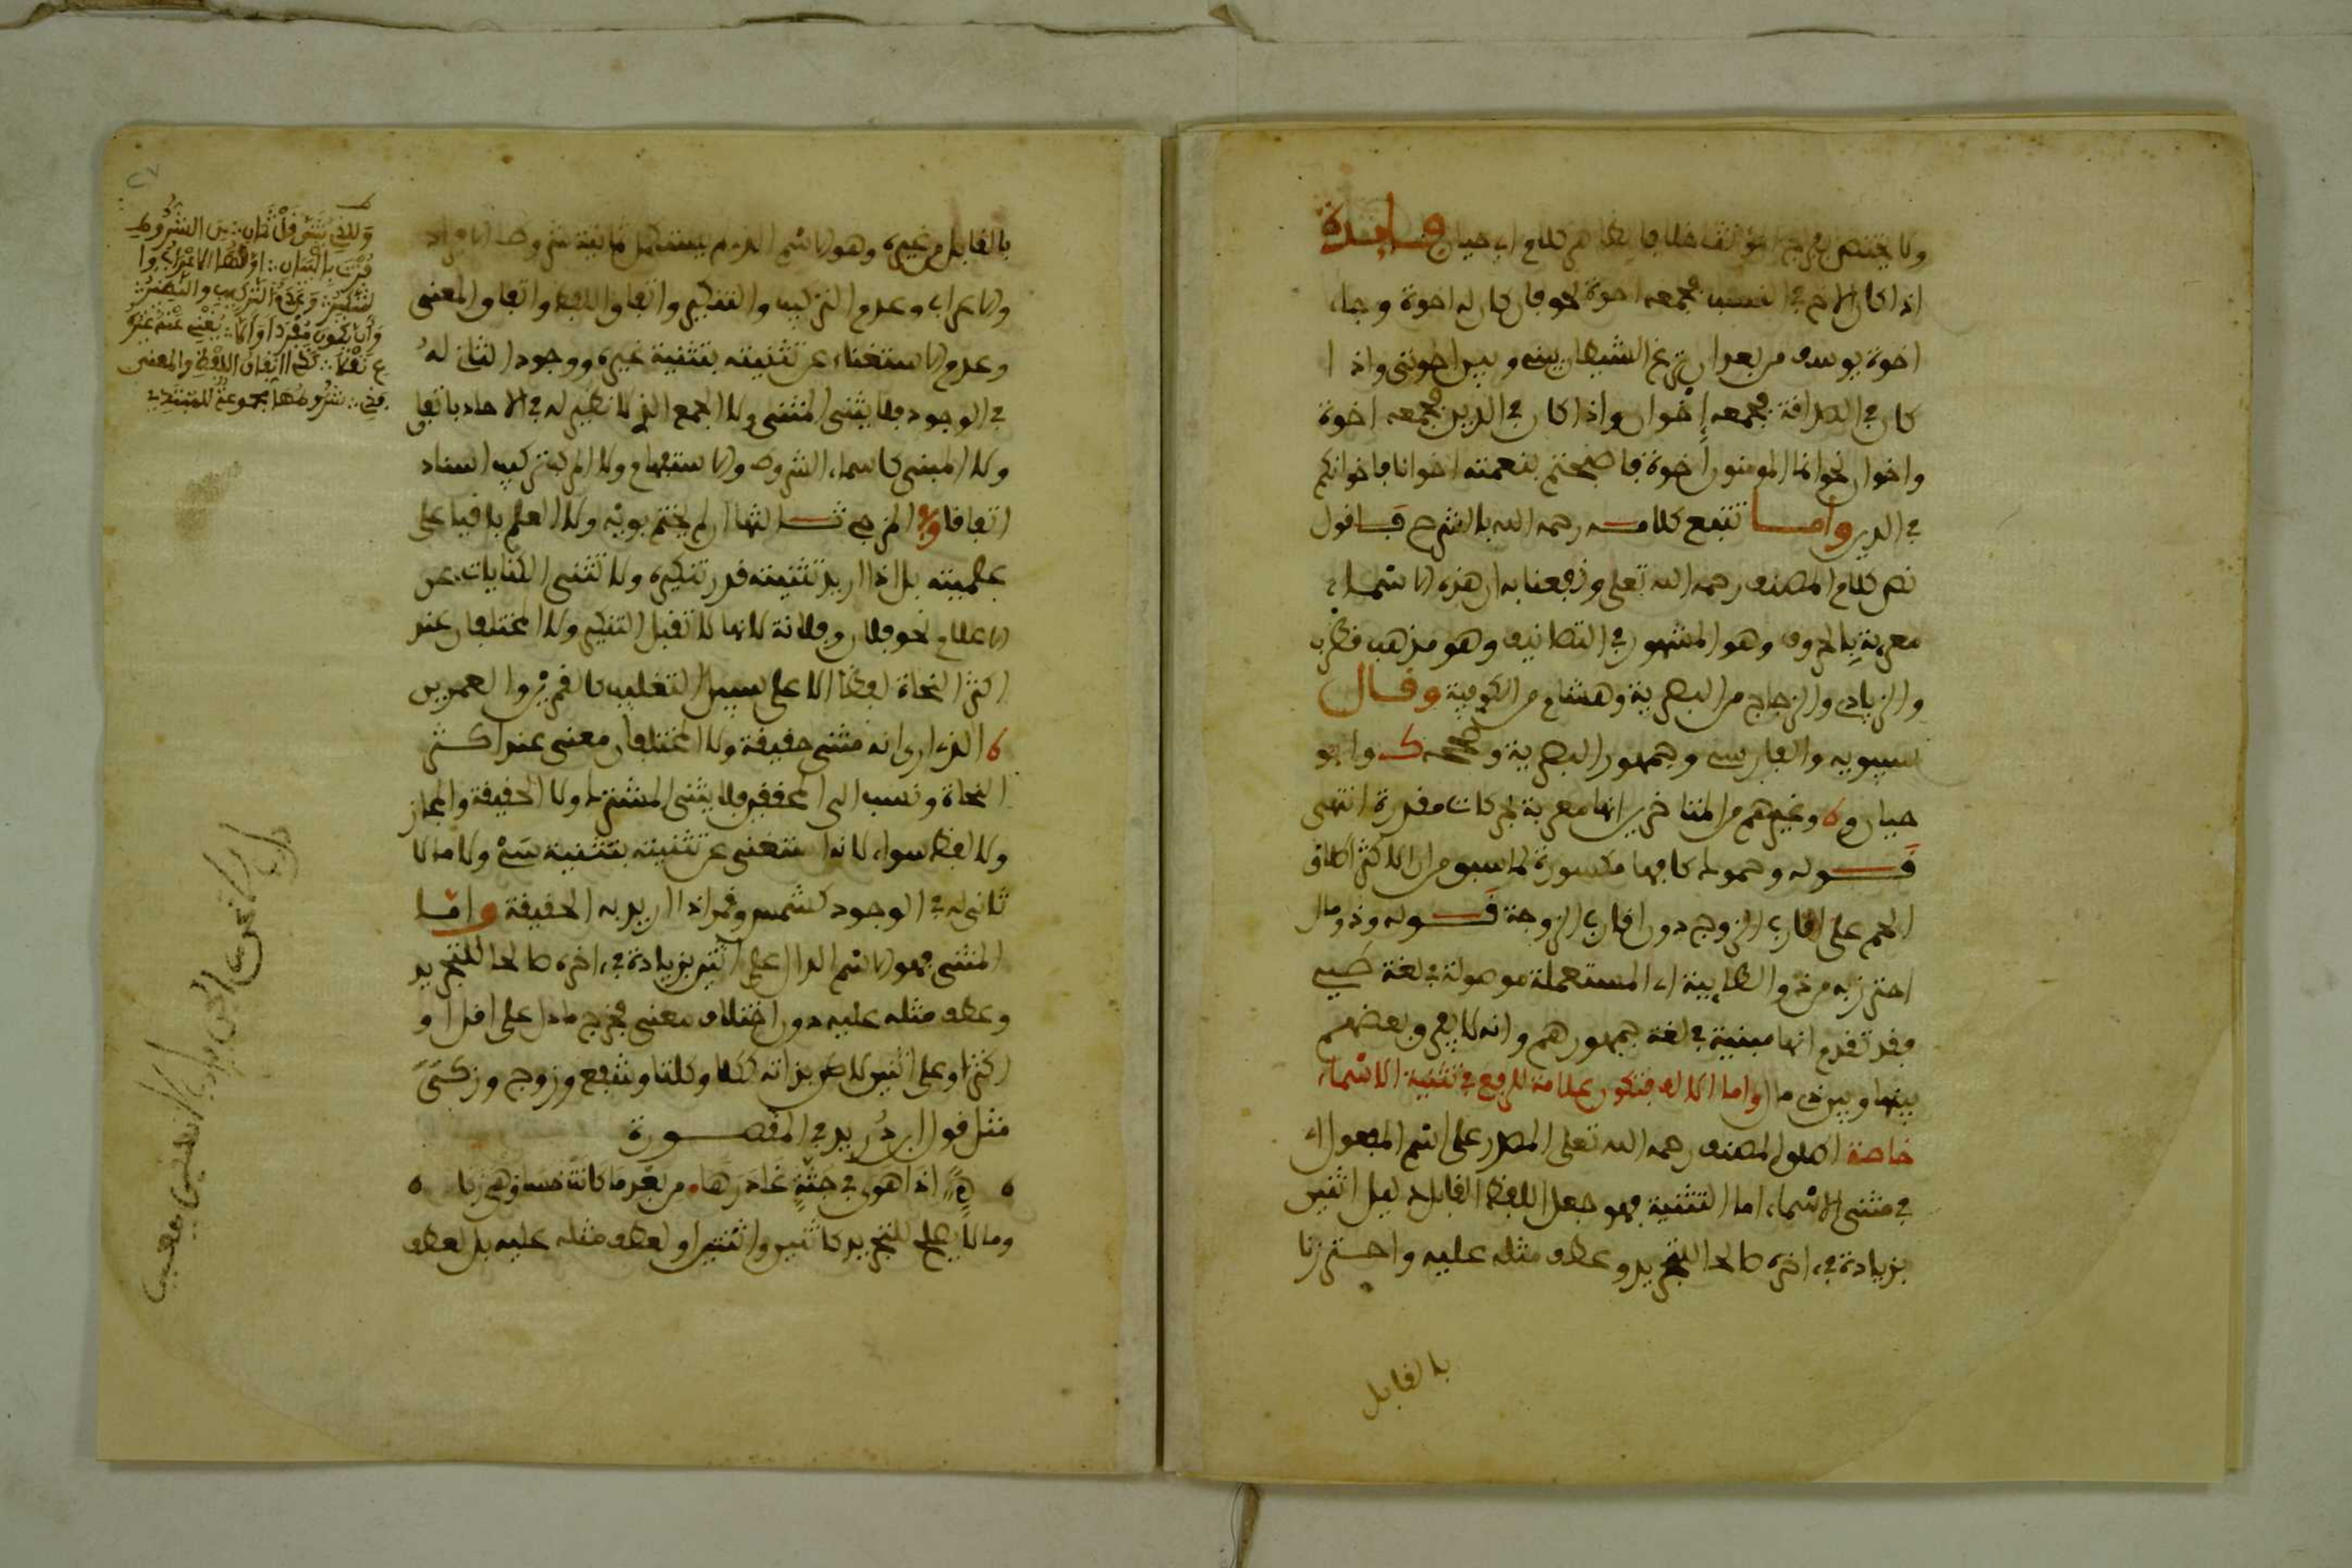 ولا يختص بفرج مؤلف خلافا لظاهر كلام ابي حيان فايدة
اذا كان الاخ في النسب فجمعه اخوة نحو فان كان له اخوة وجاء
اخوة يوسف من بعد ان نزغ الشيطان بيني وبين اخوتي واذا
كان في الصداقة فجمعه إخوان واذا كان في الدين فجمعه اخوة
واخوان نحو انما المومنون اخوة فاصبحتم بنعمته اخوانا فاخوانكم
في الدين واما تتبع كلامه رحمه الله بالشرح فاقول
نص كلام المصنف رحمه الله تعلى ونفعنا به ان هذه الاسماء
معربة بالحروف وهو المشهور في التصانيف وهو مذهب قطرب
والزيادي والزجاج من البصرية وهشام من الكوفية وقال
سيبويه والفارسي وجمهور البصرية وصححه ك وابو
حيان و وغيرهم من المتاخرين انها معربة بحركات مقدرة انتهى
قوله وحموك كافها مكسورة لما سبق من ان الاكثر اطلاق
الحم على اقارب الزوج دون اقارب الزوجة قوله وذو مال
احترز به من ذو الطايية اي المستعملة موصولة في لغة طيي
وقد تقدم انها مبنية في لغة جمهورهم وانه لا يعرب بعضهم
بينها وبين ذي ما واما الالف فتكون علامة للرفع في تثنية الاسماء
خاصة اطلق المصنف رحمه الله تعلى المصدر على اسم المفعول اي
في مثنى الاسماء اما التثنية فهو جعل اللفظ القابل دليل اثنين
بزيادة في اخره صالحا للتجريد وعطف مثله عليه واحترزنا
بالقابل
بالقابل من غيره وهو الاسم الذي لم يستكمل ثمانية شروط الافراد
والاعراب وعدم التركيب والتنكير واتفاق اللفظ واتفاق المعنى
وعدم الاستغناء عن تثنيته بتثنية غيره ووجود الثاني له
في الوجود فلا يثنى المثنى ولا الجمع الذي لا نظير له في الاحاد باتفاق
ولا المبني كاسماء الشروط والاستفهام ولا المركب تركيب اسناد
اتفاقا وفي المزجي ثالثها ان لم يختم بويه ولا العلم باقيا على
علميته بل اذا اريد تثنيته قدر تنكيره ولا تثنى الكنايات عن
الاعلام نحو فلان وفلانة لانها لا تقبل التنكير ولا المختلفان عند
اكثر النحاة لفظا الا على سبيل التغليب كالقمرين والعمرين
الذي ارى انه مثنى حقيقة ولا المختلفان معنى عند اكثر
النحاة ونسب الى المحققين فلا يثنى المشترك ولا الحقيقة والمجاز
ولا لفظ سواء لانه استغنى عن تثنيته بتثنية سي ولا ما لا
ثاني له في الوجود كشمس وقمر اذا اريد به الحقيقة واما
المثنى فهو الاسم الدال على اثنين بزيادة في اخره صالحا للتجريد
وعطف مثله عليه دون اختلاف معنى فخرج ما دل على اقل او
اكثر او على اثنين لا بزيادة ككلا وكلتا وشفع وزوج وزكى
مثل قول ابن دريد في المقصورة
اذا هوى في جثة غادرها من بعد ما كانت خسا وهي زكا
وما لا يصلح للتجريد كاثنين واثنتين او لعطف مثله عليه بل لعطف
وللذي تثنى قل ثمان من الشروط
قرنت بالبيان اولها الاعراب وا
لتنكير وعدم التركيب والنظير
وان يكون مفردا وان لا يغني عنه غيره
نقلا كذا اتفاق اللفظ والمعنى
شروطها مجموعة للمبتدي